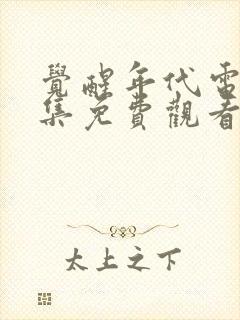 覺醒年代電
集免費觀看
太上之下